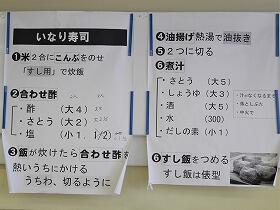 いなり寿司
❶米２合にこんぶをのせ
「すし用」で炊飯
❷合わせ酢
・酢 （大４）
・さとう （大２）
・塩 （小１．１/２）
❸飯が炊けたら合わせ酢を
熱いうちにかける
うちわ、切るように
❹油揚げ熱湯で油抜き
❺２つに切る
❻煮汁
・さとう （大５）
・しょうゆ （大３）
・酒 （大５）
・水 （300）
・だしの素（小１）
・汁がなくなるまで
・落としぶた
・中火で
❻すし飯をつめる
すし飯は俵型